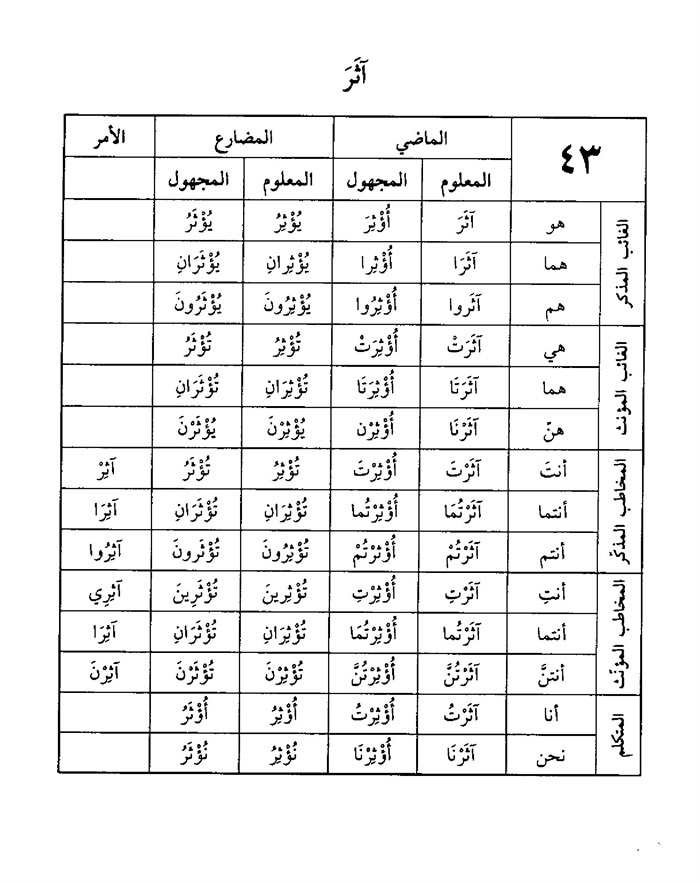 آثَرَ
٤٣ الماضي المضارع الأمر
المعلوم المجهول المعلوم المجهول
الغائب المذكر
هو آثَرَ أُؤْثِرَ يُؤْثِرُ يُؤْثَرُ
هما آثَرَا أُؤْثِرا يُؤْثِرانِ يُؤْثَرَانِ
هم آثَروا أُؤْثِرُوا يُؤْثِرُونَ يُؤْثَرُونَ
الغائب المؤنث
هي آثَرَتْ أُؤْثِرَتْ تُؤْثِرُ تُؤْثَرُ
هما آثَرَتَا أُؤْثِرَتَا تُؤْثِرَانِ تُؤْثَرَانِ
هنّ آثَرْنَا أُؤْثِرْن يُؤْثِرْنَ يُؤْثَرْنَ
المخاطب المذكّر
أنتَ آثَرْتَ أُؤْثِرْتَ تُؤْثِرُ تُؤْثَرُ آثِرْ
أنتما آثَرْتُمَا أُؤْثِرْتُما تُؤْثِرَانِ تُؤْثَرَانِ آثِرَا
أنتم آثَرْتُمْ أُؤْثِرْتُمْ تُؤْثِرُونَ تُؤْثَرونَ آثِرُوا
المخاطب المؤنث
أنتِ آثَرْتِ أُؤْثِرْتِ تُؤْثِرِينَ تُؤْثَرِينَ آثِرِي
أنتما آثَرْتُما أُؤْثِرْتُمَا تُؤْثِرَانِ تُؤْثَرَانِ آثِرَا
أنتنَّ آثَرْتُنَّ أُؤْثِرْتُنَّ تُؤْثِرْنَ تُؤْثَرْنَ آثِرْنَ
المتكلم
أنا آثَرْتُ أُؤْثِرْتُ أُؤْثِرُ أُؤْثَرُ
نحن آثَرْنَا أُؤْثِرْنَا نُؤْثِرُ نُؤْثَرُ